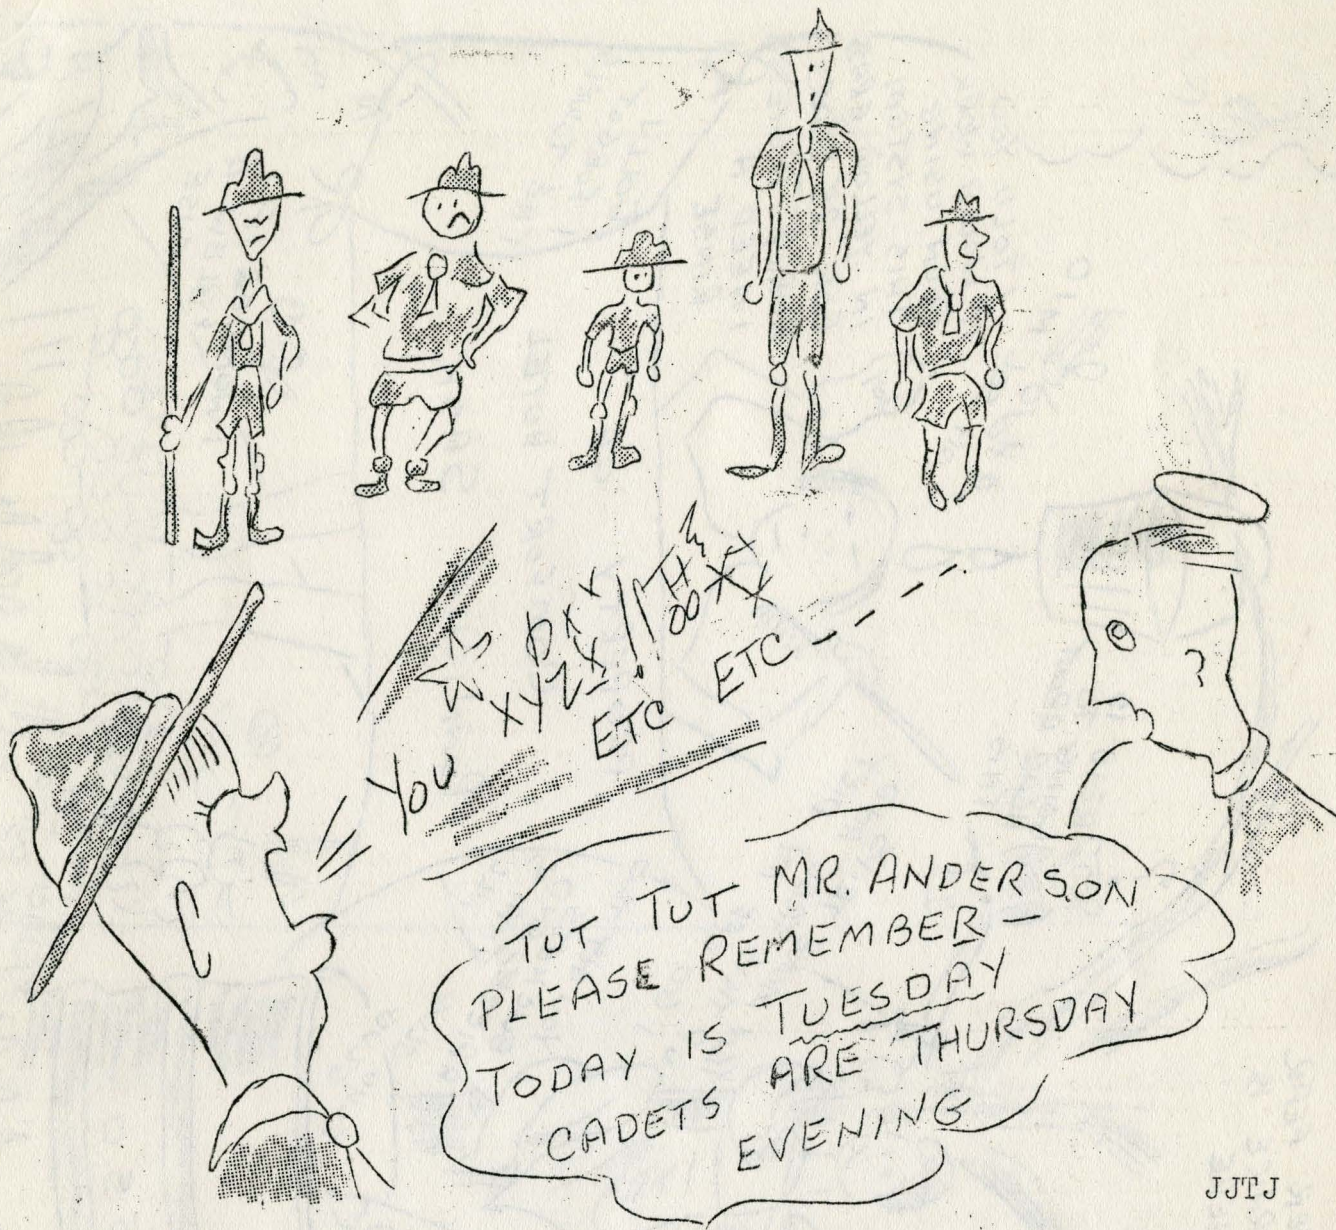 YOU XYZX !! ETC ETC
TUT TUT MR. ANDERSON
PLEASE REMEMBER —
TODAY IS TUESDAY
CADETS ARE THURSDAY
EVENING
JJTJ